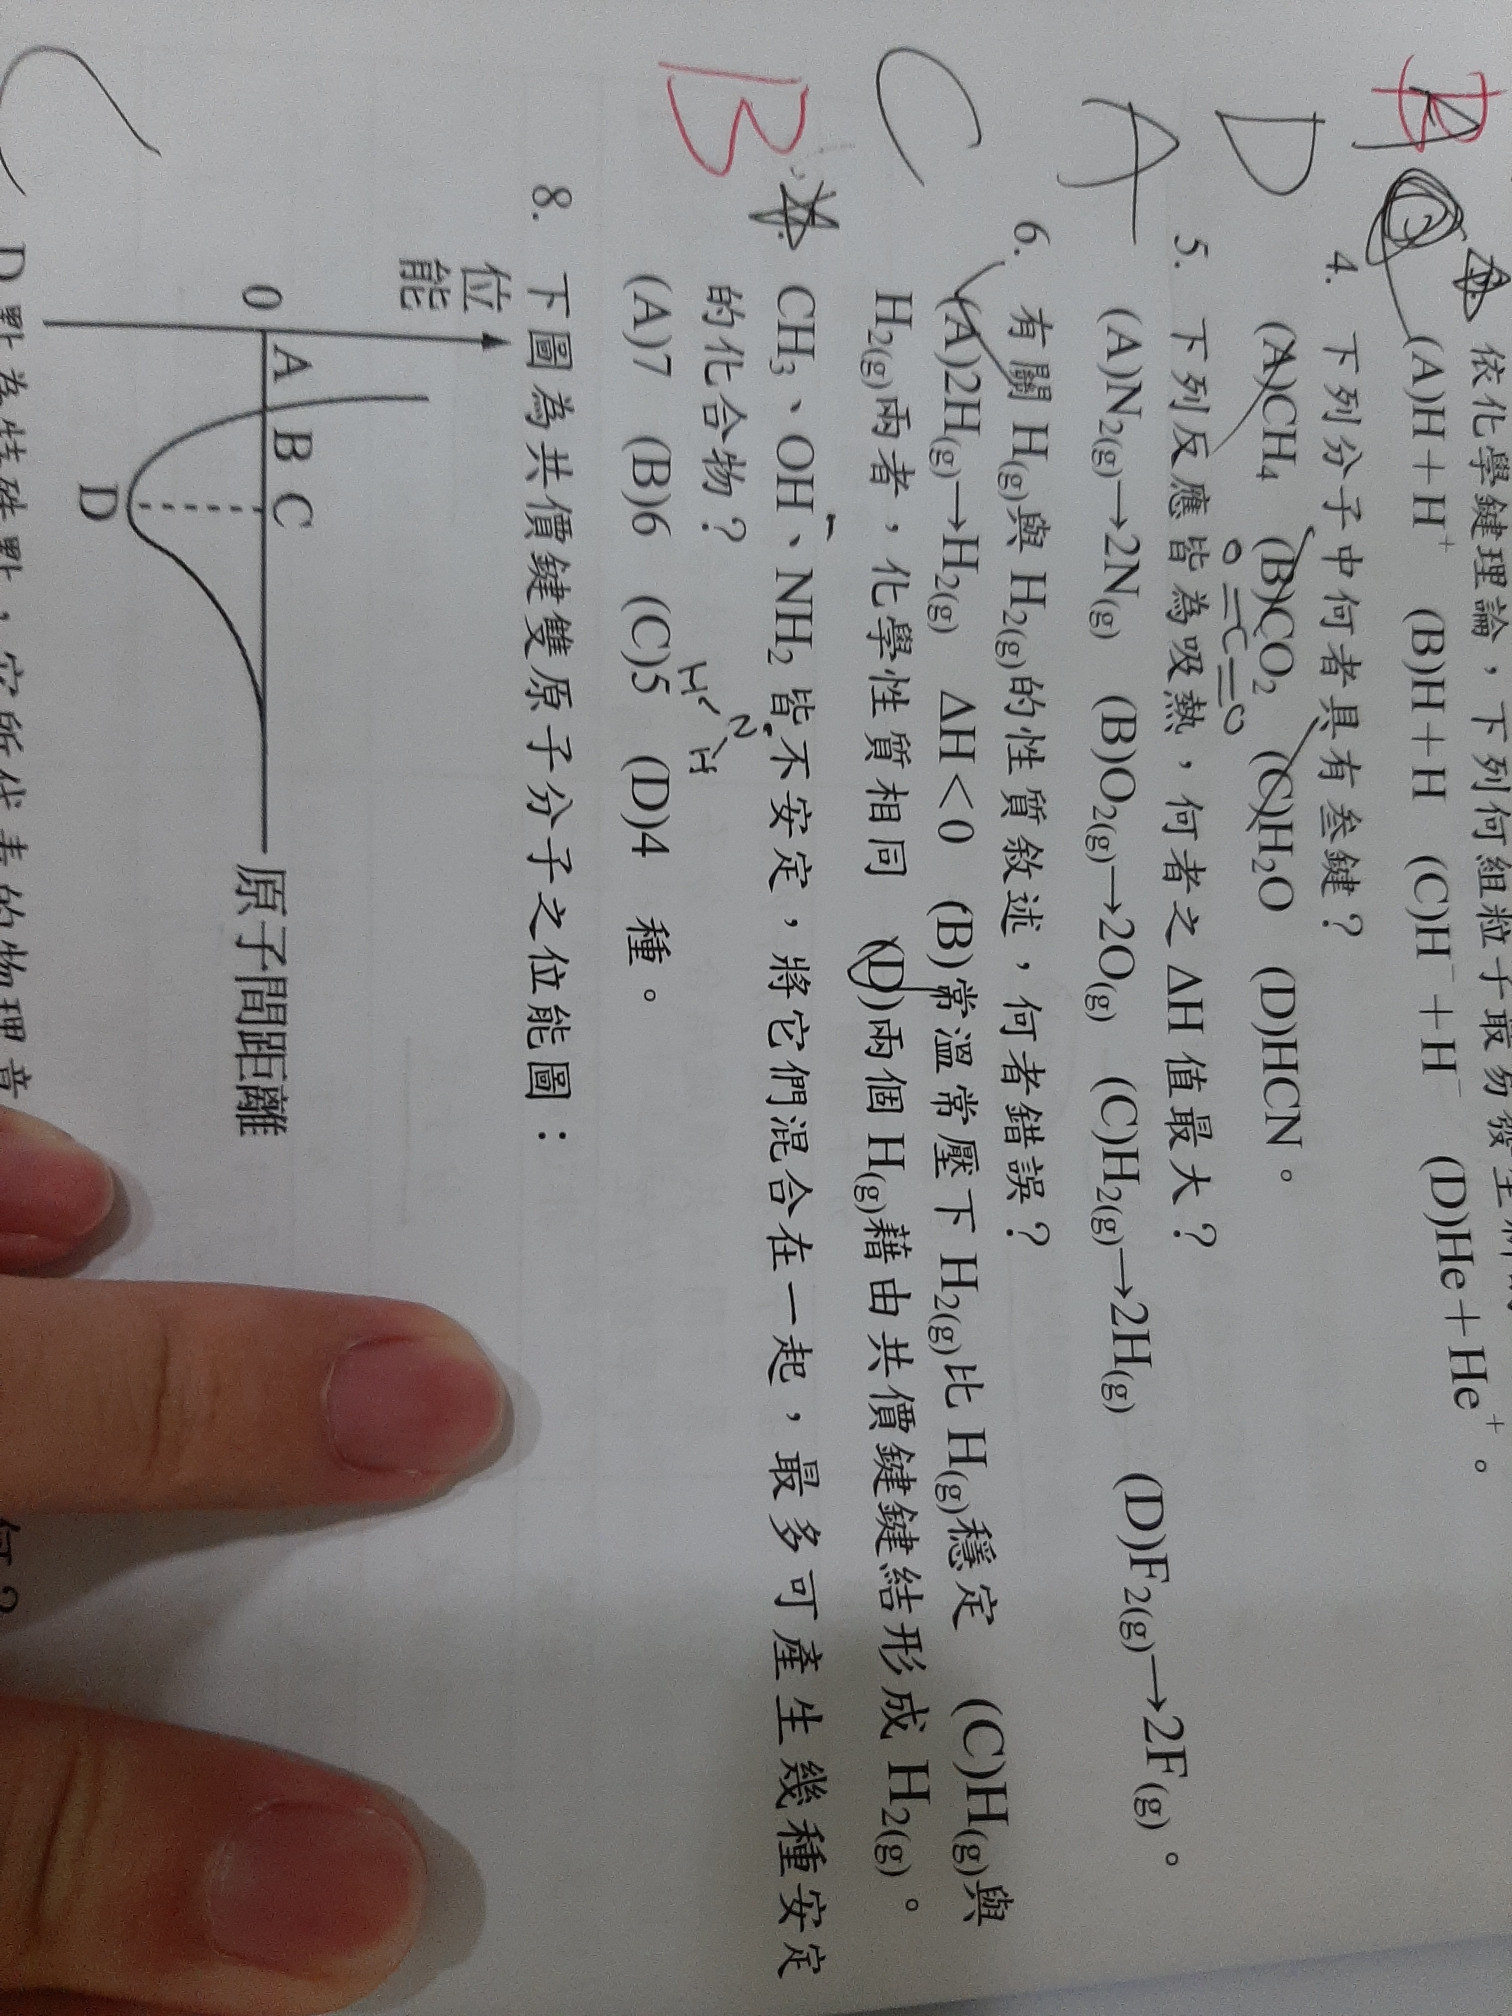 依化學鍵理論，下列何組粒子最易發生
B (A)H＋H⁺ (B)H＋H (C)H⁻＋H⁻ (D)He＋He⁺。
4. 下列分子中何者具有叁鍵？
D (A)CH₄ (B)CO₂ (C)H₂O (D)HCN。
O=C=O
5. 下列反應皆為吸熱，何者之 ΔH 值最大？
A (A)N₂(g)→2N(g) (B)O₂(g)→2O(g) (C)H₂(g)→2H(g) (D)F₂(g)→2F(g)。
6. 有關 H(g)與 H₂(g)的性質敘述，何者錯誤？
(A)2H(g)→H₂(g) ΔH＜0 (B)常溫常壓下 H₂(g)比 H(g)穩定 (C)H(g)與
C H₂(g)兩者，化學性質相同 (D)兩個 H(g)藉由共價鍵鍵結形成 H₂(g)。
CH₃、OH、NH₂ 皆不安定，將它們混合在一起，最多可產生幾種安定
B 的化合物？
H N H
(A)7 (B)6 (C)5 (D)4 種。
8. 下圖為共價鍵雙原子分子之位能圖：
位能
0 A B C 原子間距離
D
C D 點為特殊點，它所代表的物理意
何？